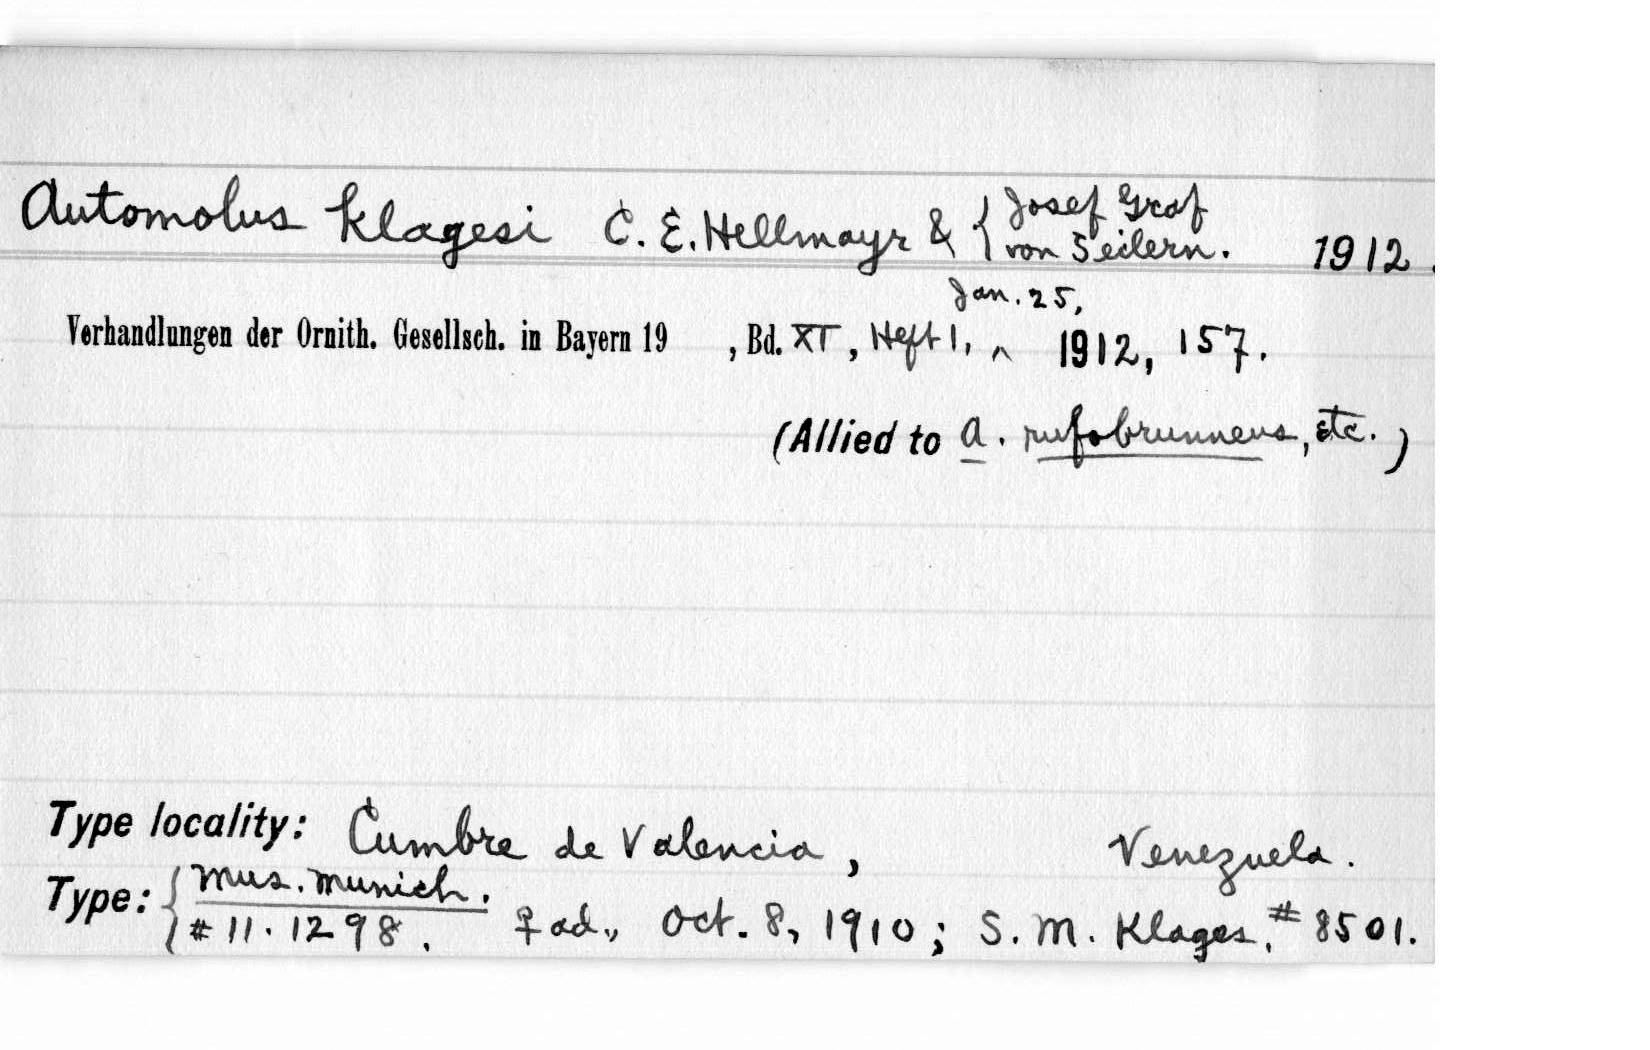 Automolus klagesi C. E. Hellmayr & { Josef Graf von Seilern. 1912.
Jan. 25,
Verhandlungen der Ornith. Gesellsch. in Bayern 19 , Bd. XI, Heft 1, ^ 1912, 157.
(Allied to A. rufobrunneus, etc.)
Type locality: Cumbre de Valencia, Venezuela.
Type: { Mus. Munich.
# 11.1298. ♀ ad., Oct. 8, 1910; S. M. Klages, # 8501.